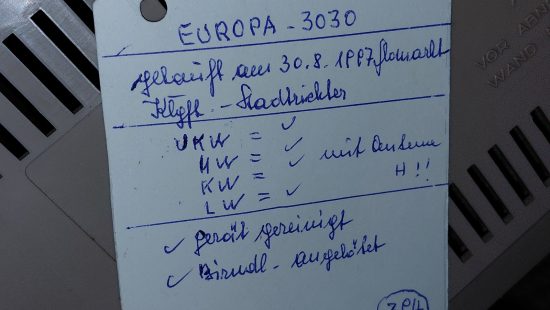 EUROPA - 3030
gekauft am 30.8.1997 flomarkt
Klgft. - Stadtrichter
UKW = ✓
MW = ✓
KW = ✓ mit Antenne
LW = ✓ H!!
✓ gerät gereinigt
✓ Birndl - angelötet
VOR ABN
WAND